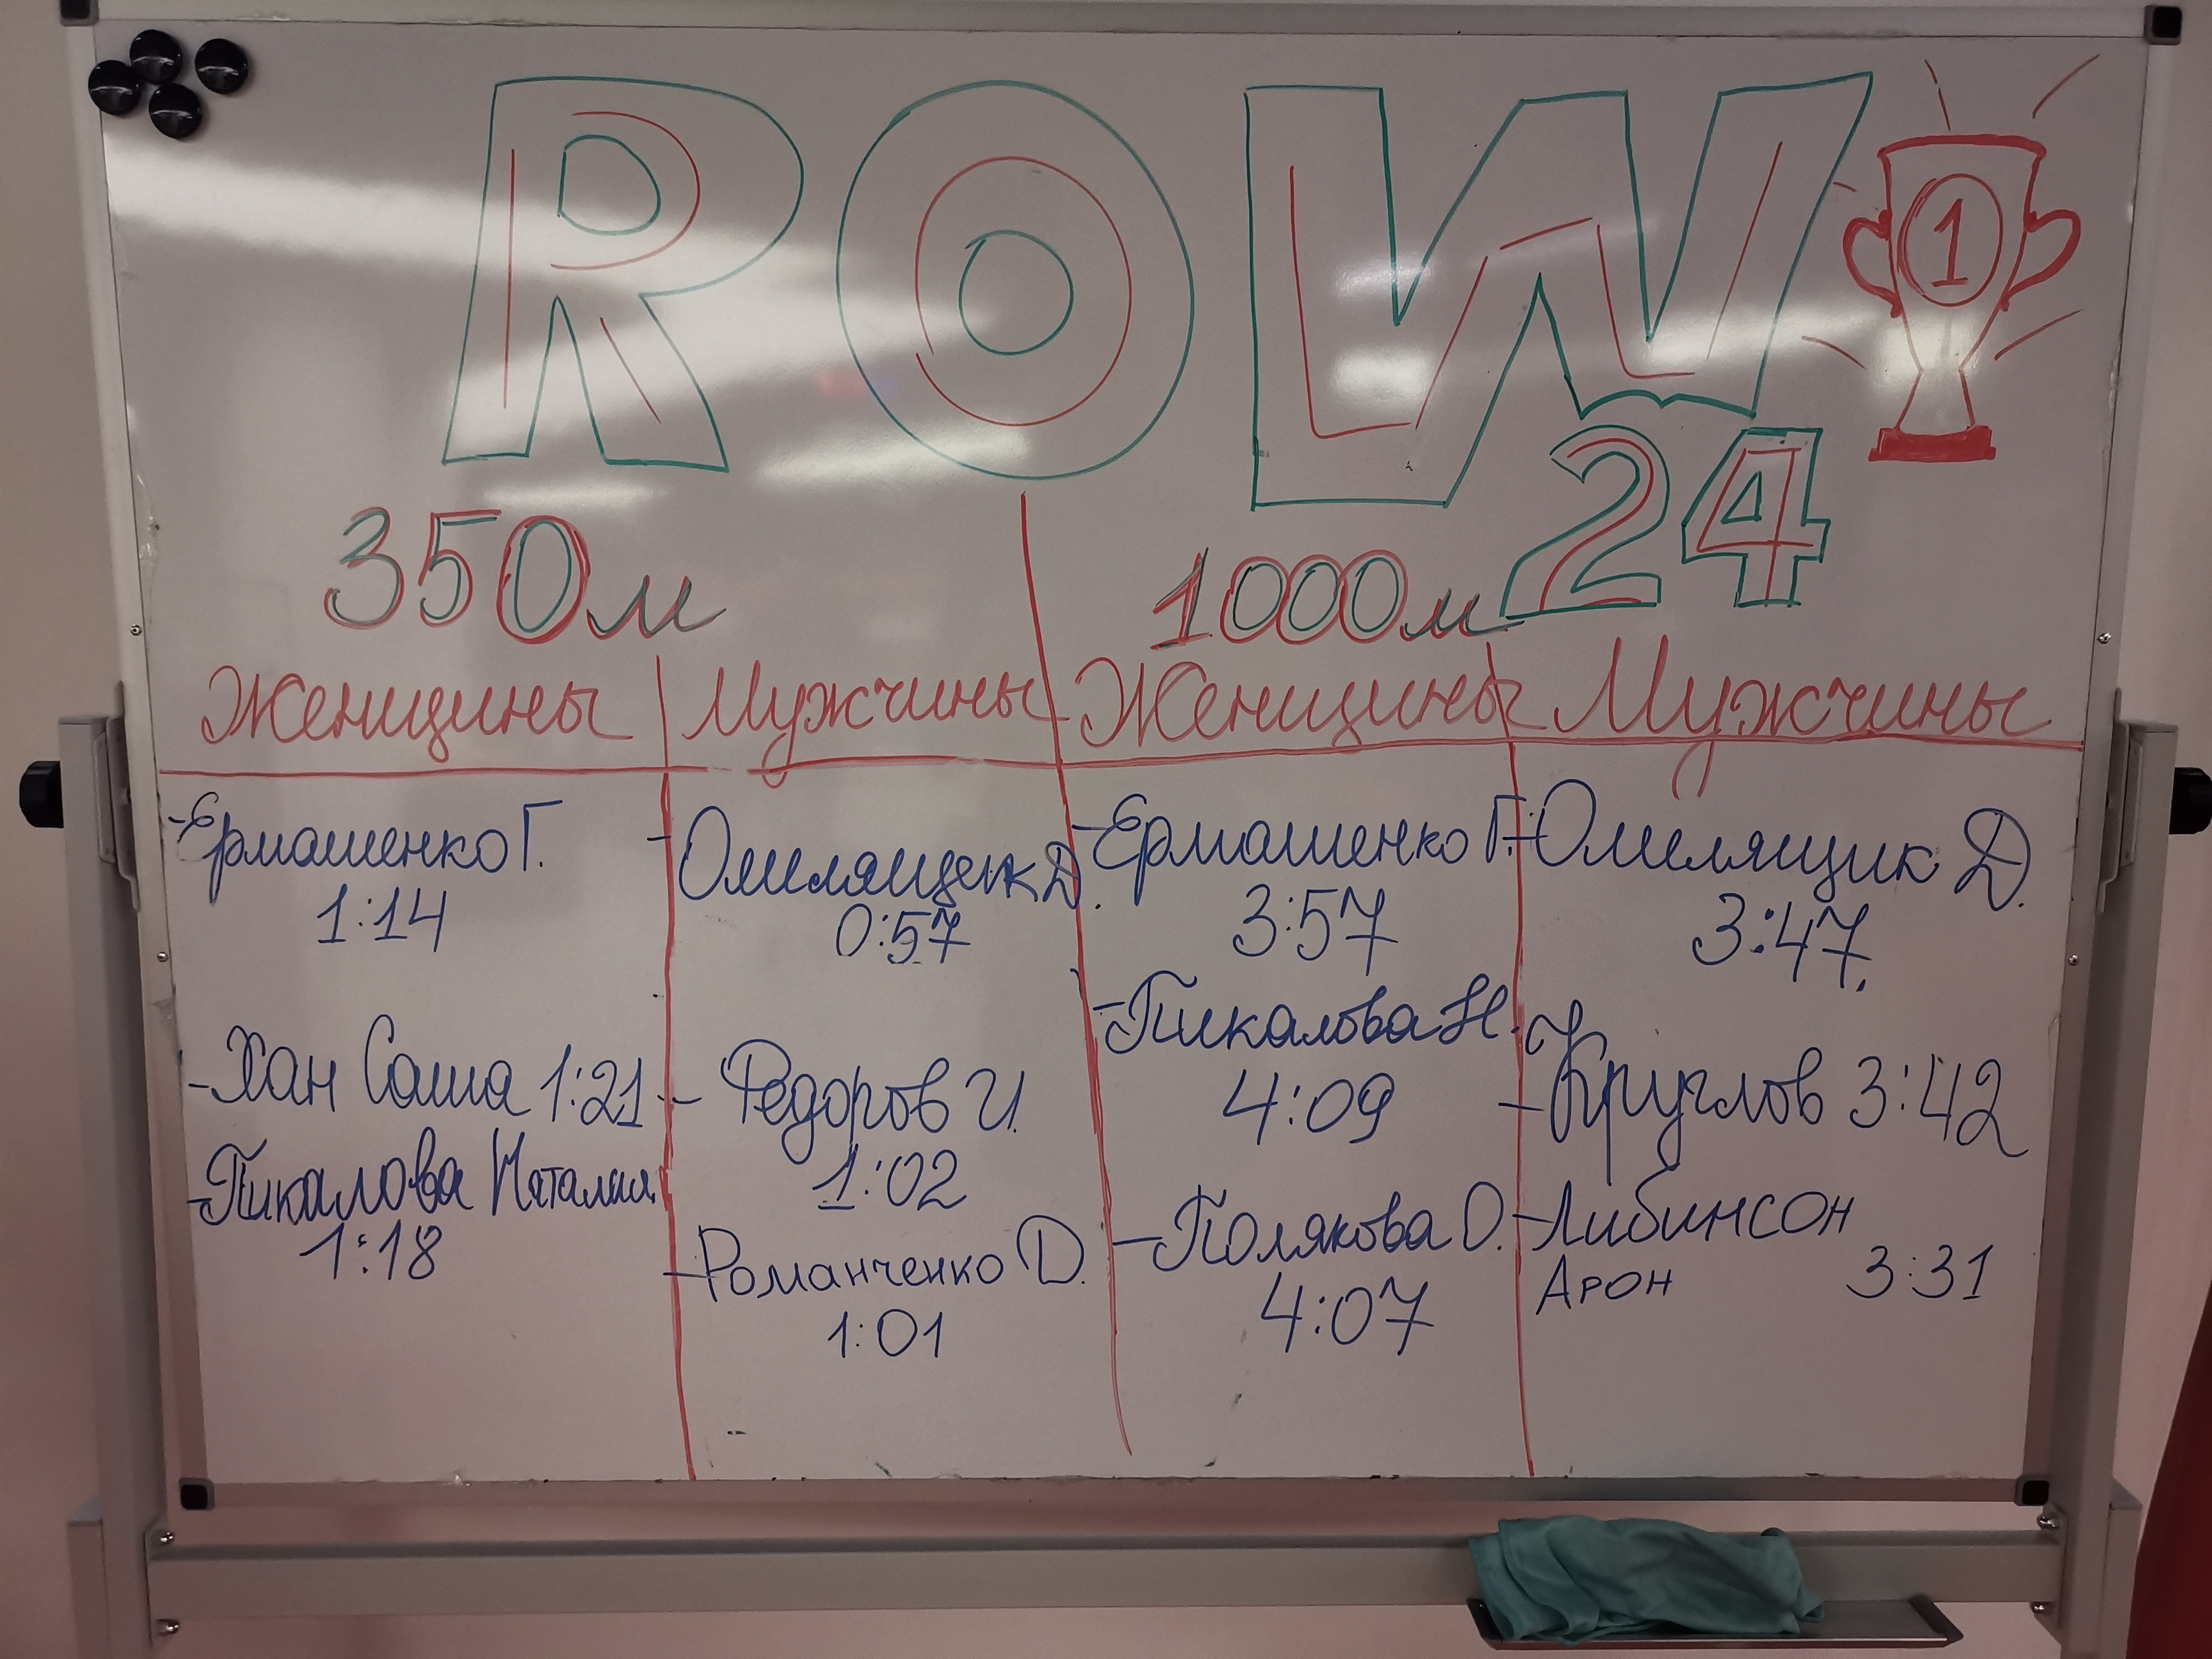 ROW
24
1
350м
1000м
Женщины
Мужчины
Женщины
Мужчины
- Ермашенко Г.
1:14
- Хан Саша 1:21
- Пикалова Наталия
1:18
- Омелянщик Д.
0:57
- Федоров И.
1:02
- Романченко Д.
1:01
- Ермашенко Г.
3:57
- Пикалова Н.
4:09
- Полякова О.
4:07
- Омелящик Д.
3:47.
- Круглов 3:42
- Либинсон
Арон 3:31